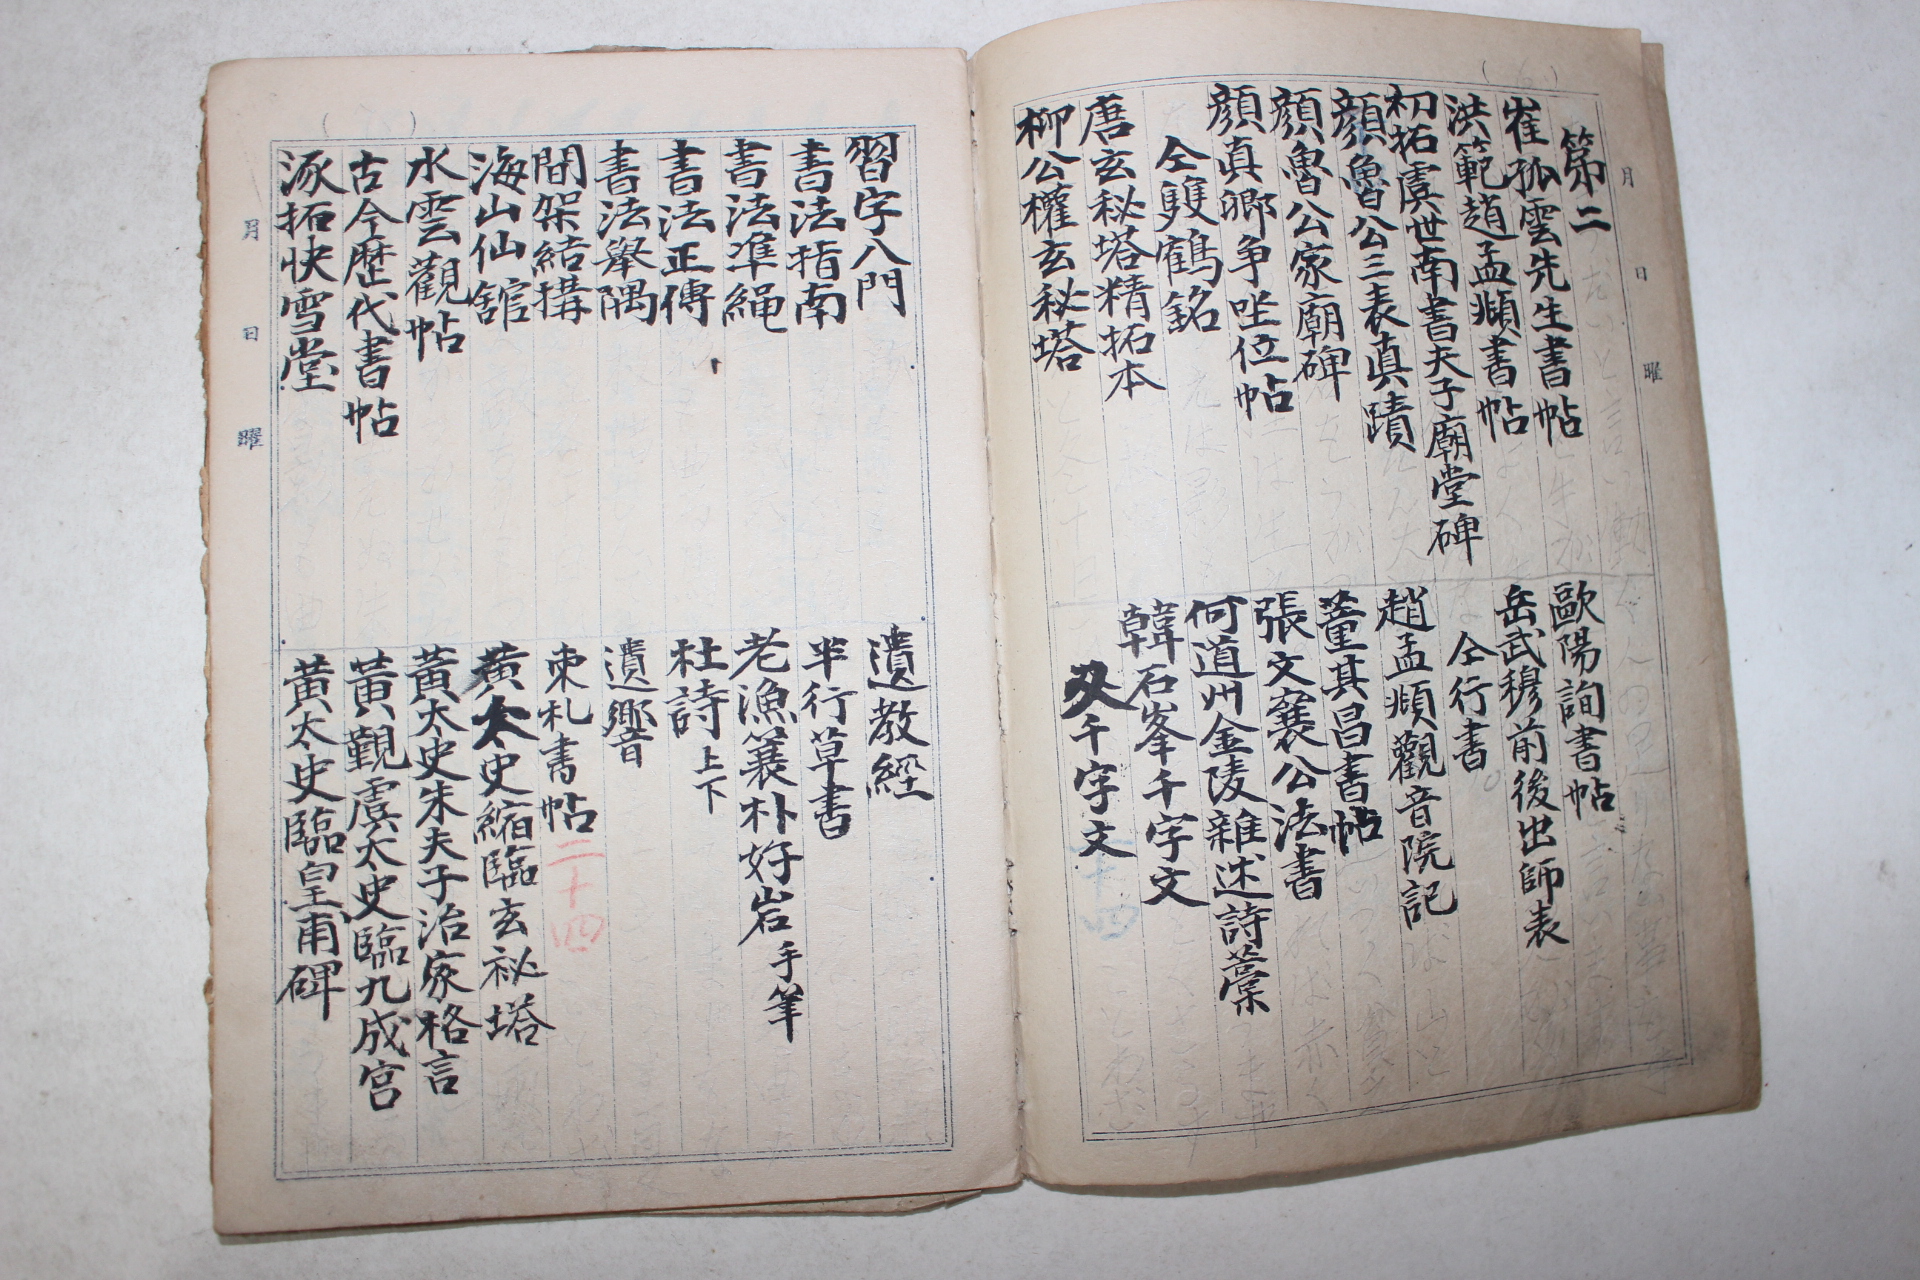 第二
崔孤雲先生書帖
洪範趙孟頫書帖
初拓虞世南書夫子廟堂碑
顔魯公三表真蹟
顔魯公家廟碑
顔真卿争坐位帖
仝雙鶴銘
唐玄秘塔精拓本
柳公權玄秘塔
歐陽詢書帖
岳武穆前後出師表
仝行書
趙孟頫觀音院記
董其昌書帖
張文襄公法書
何道州金陵雜述詩藁
韓石峯千字文
又千字文
月 日 曜
習字八門
書法指南
書法準繩
書法正傳
書法舉隅
間架結搆
海山仙舘
水雲觀帖
古今歷代書帖
涿拓快雪堂
遺教經
半行草書
老漁簑朴好岩手筆
杜詩上下
遺響
束札書帖 二十四
黄太史縮臨玄祕塔
黄太史朱夫子治家格言
黄觀虞太史臨九成宮
黄太史臨皇甫碑
月 日 曜